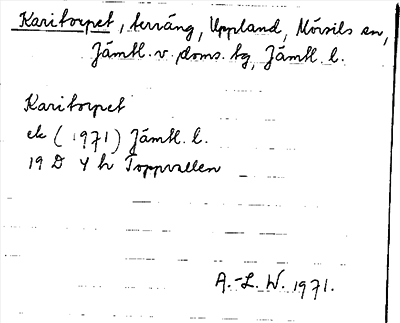 Karitorpet, terräng, Uppland, Mörsils sn,
Jämtl. v. doms. tg, Jämtl. l.
Karitorpet
ek (1971) Jämtl. l.
19 D 4 h Toppvallen
A.-L. W. 1971.